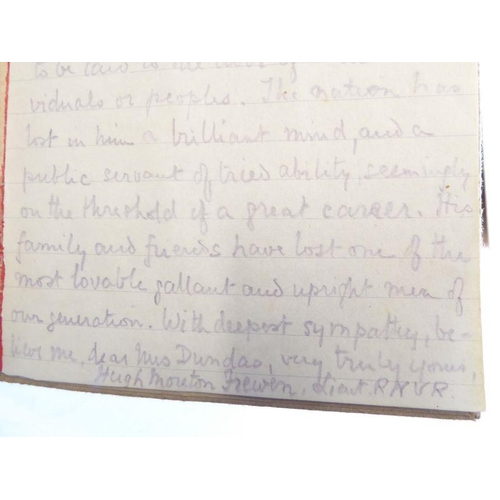 to be laid to the
viduals or peoples. The nation has
lost in him a brilliant mind, and a
public servant of tried ability, seemingly
on the threshold of a great career. His
family and friends have lost one of the
most lovable gallant and upright men of
our generation. With deepest sympathy, be-
lieve me, dear Mrs Dundas, very truly yours,
Hugh Moreton Frewen, Lieut. RNVR.